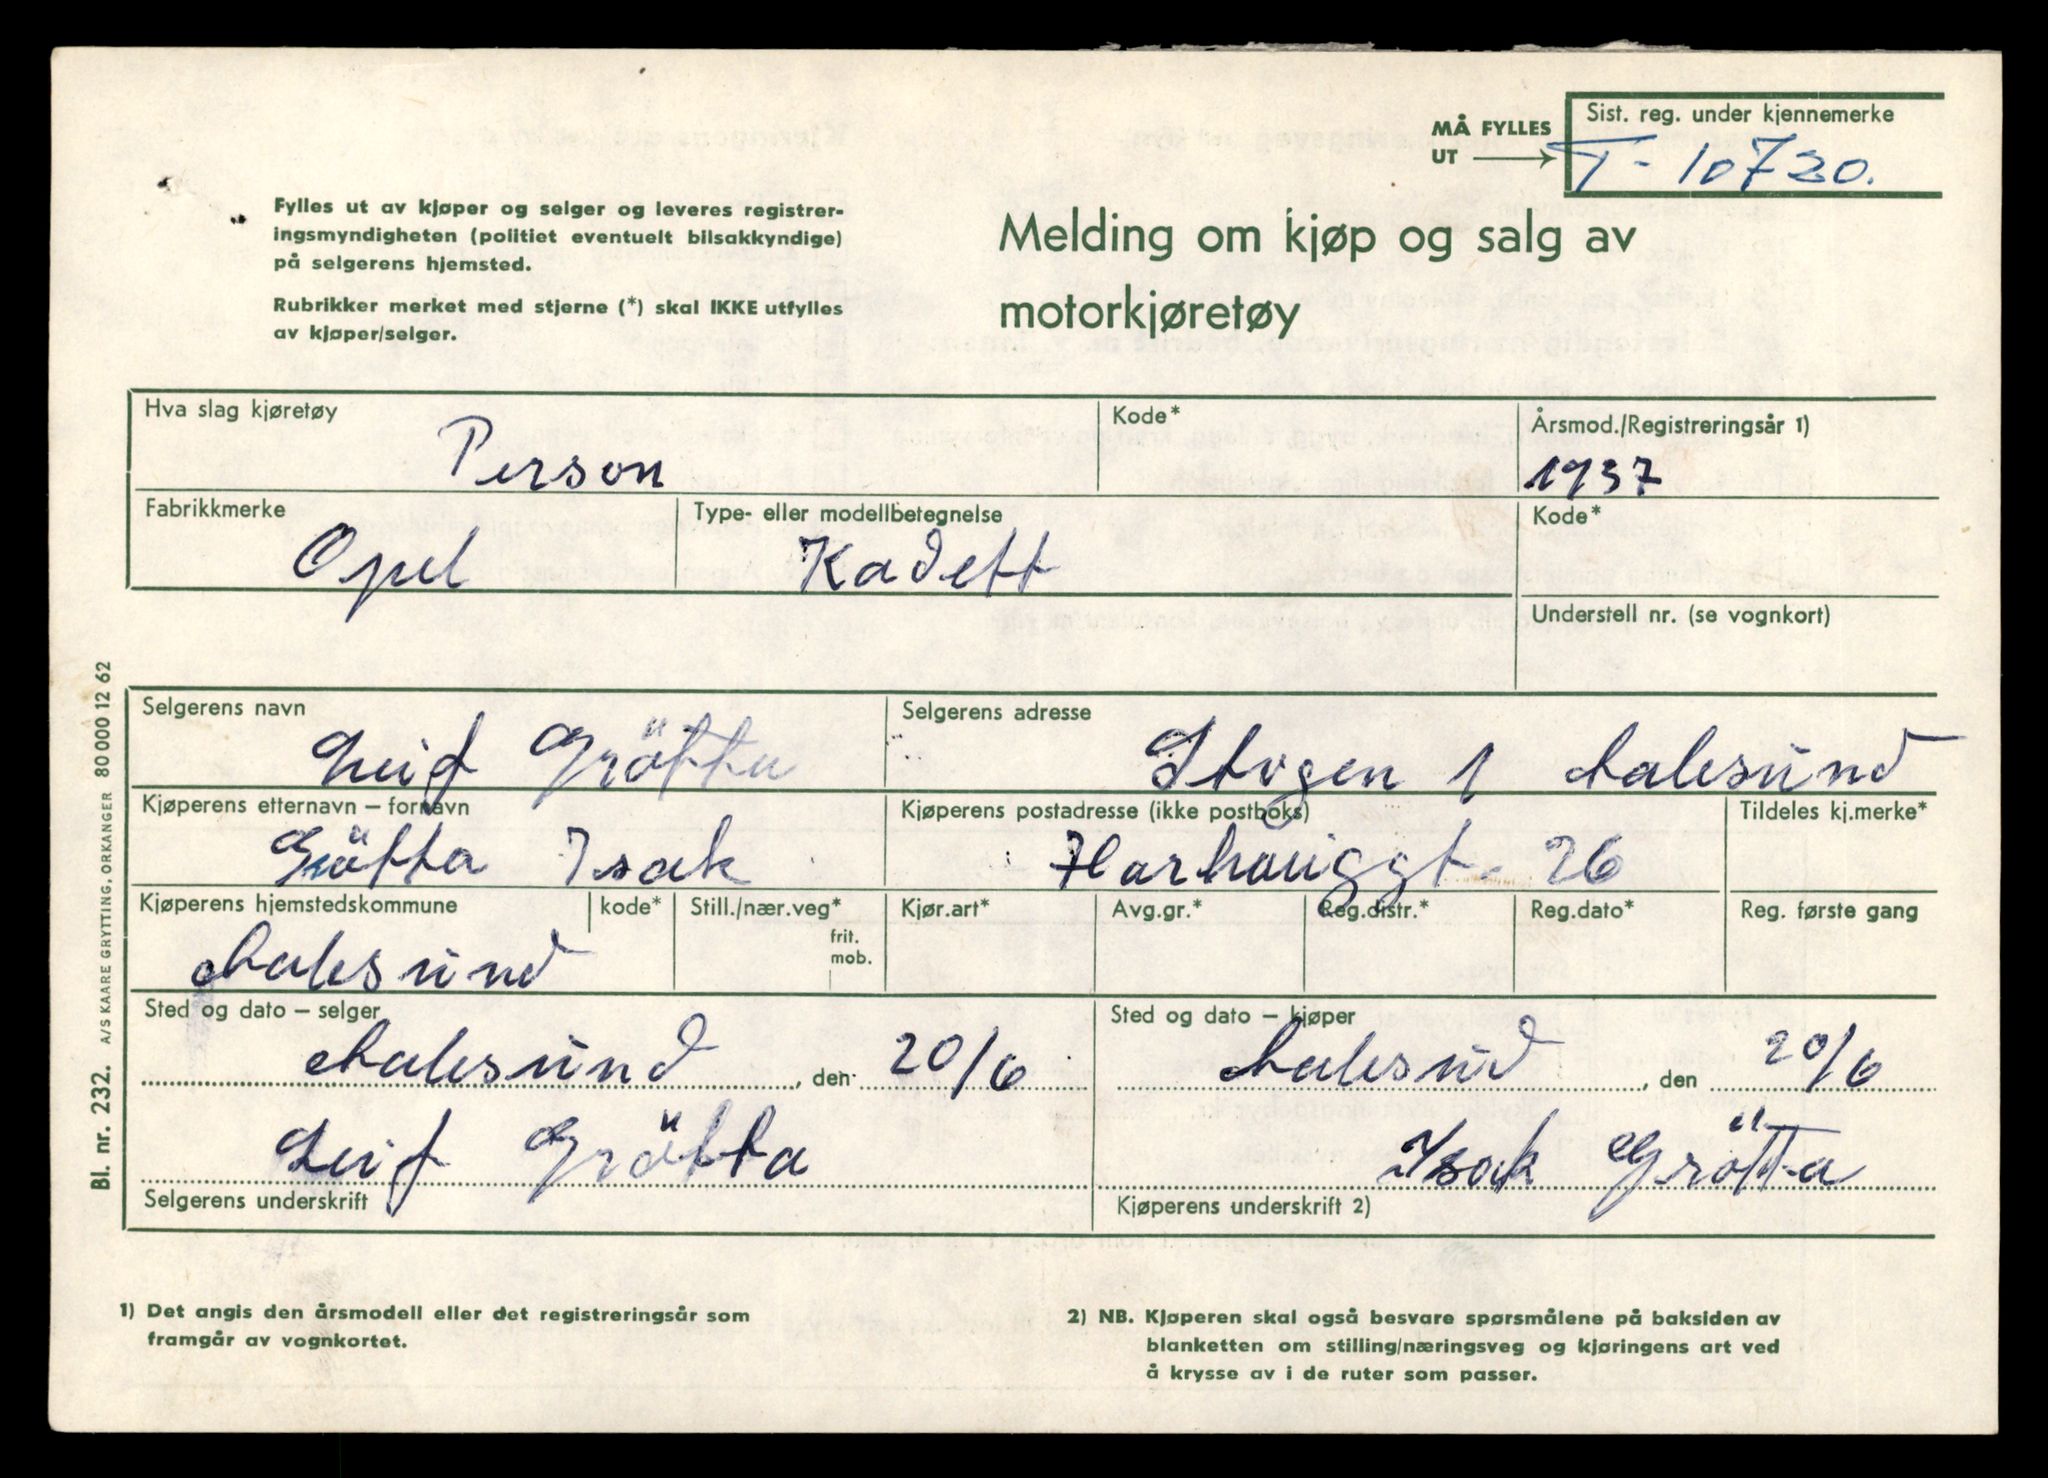 MÅ FYLLES UT
Sist. reg. under kjennemerke
T- 10720.
Fylles ut av kjøper og selger og leveres registrer-
ingsmyndigheten (politiet eventuelt bilsakkyndige)
på selgerens hjemsted.
Rubrikker merket med stjerne (*) skal IKKE utfylles
av kjøper/selger.
Melding om kjøp og salg av
motorkjøretøy
Hva slag kjøretøy
Person
Kode*
Årsmod./Registreringsår 1)
1937
Fabrikkmerke
Opel
Type- eller modellbetegnelse
Kadett
Kode*
Understell nr. (se vognkort)
Selgerens navn
Leif Grötta
Selgerens adresse
1 Aalesund
Kjøperens etternavn – fornavn
Grötta Isak
Kjøperens postadresse (ikke postboks)
Harhauggt. 26
Tildeles kj.merke*
Kjøperens hjemstedskommune
Aalesund
kode*
Still./nær.veg*
frit.
mob.
Kjør.art*
Avg.gr.*
Reg.distr.*
Reg.dato*
Reg. første gang
Sted og dato – selger
Aalesund, den 20/6
Sted og dato – kjøper
Aalesund, den 20/6
Leif Grötta
Selgerens underskrift
Isak Grötta
Kjøperens underskrift 2)
1) Det angis den årsmodell eller det registreringsår som
framgår av vognkortet.
2) NB. Kjøperen skal også besvare spørsmålene på baksiden av
blanketten om stilling/næringsveg og kjøringens art ved
å krysse av i de ruter som passer.
Bl. nr. 232. A/S KAARE GRYTTING, ORKANGER 80 000 12 62